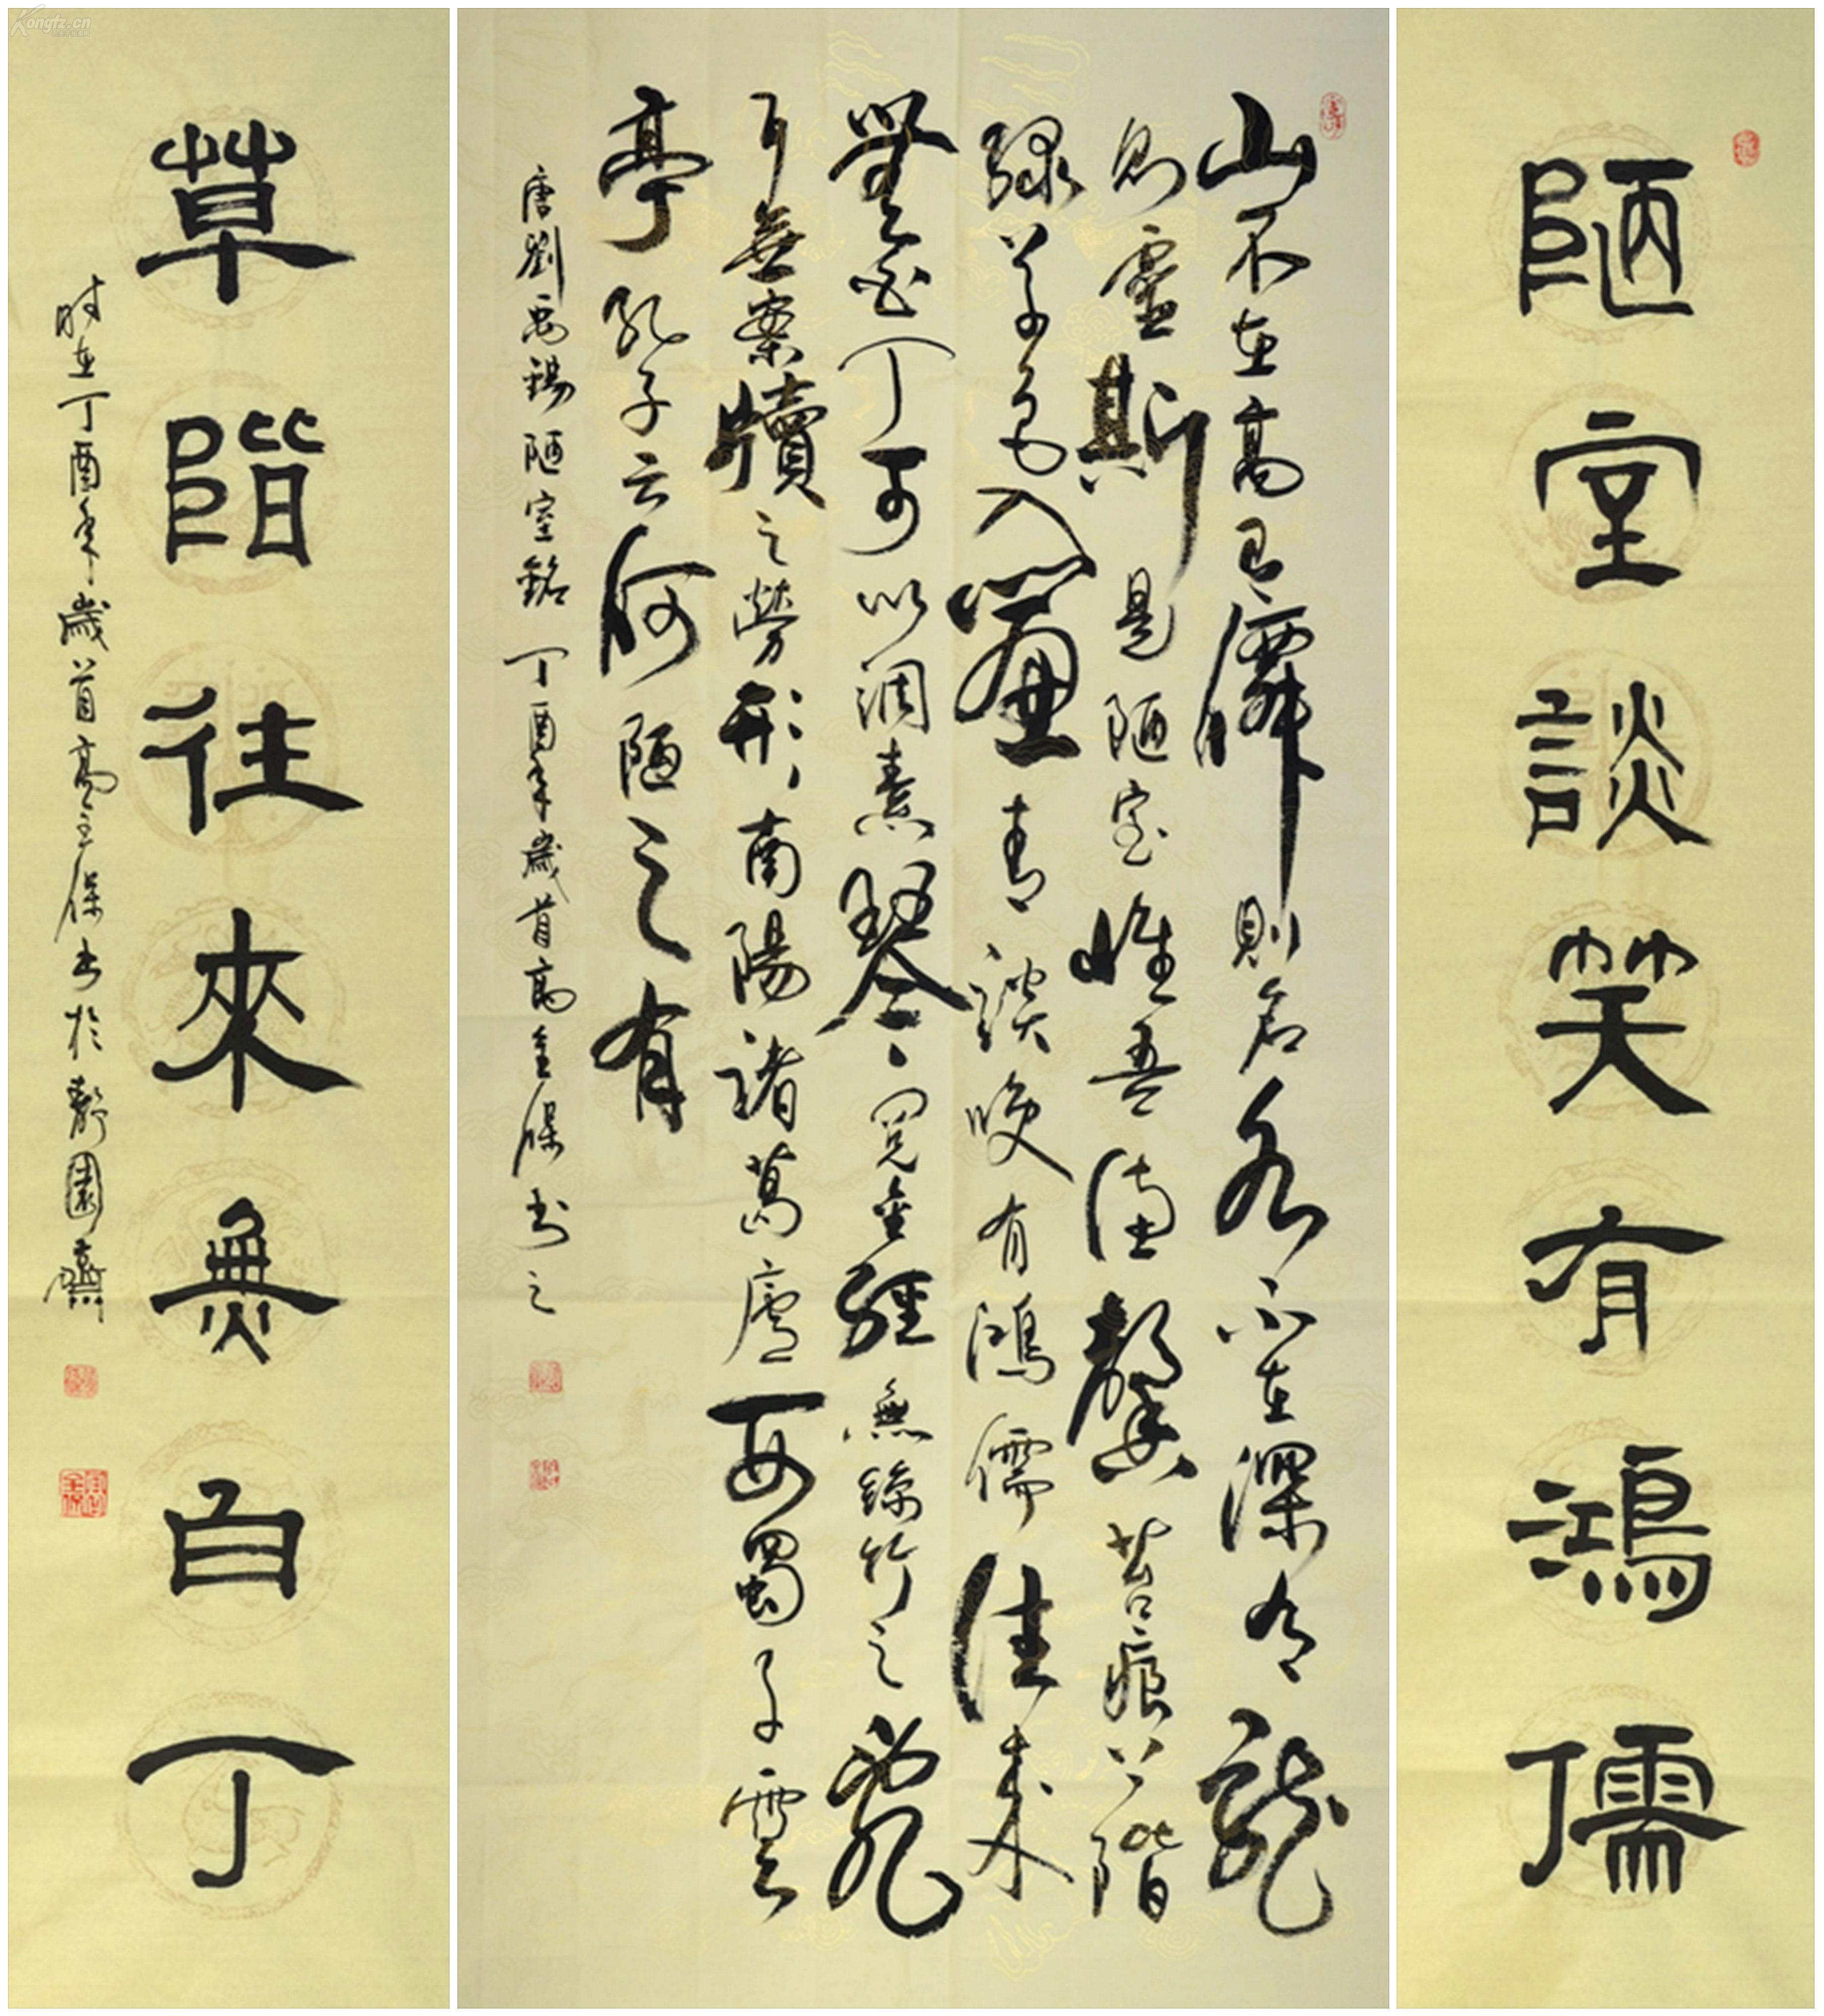 陋室談笑有鴻儒
山不在高有僊則名水不在深有龍
則靈斯是陋室惟吾德馨苔痕上階
綠草色入簾青談咲有鴻儒往来
無白丁可以調素琴閱金經無絲竹之亂
耳無案牘之勞形南陽諸葛廬西蜀子雲
亭孔子云何陋之有
唐劉禹錫陋室銘丁酉年歲首高金保书之
草階往來無白丁
时在丁酉年歲首高金保书於靜園齋
Kongfz.cn